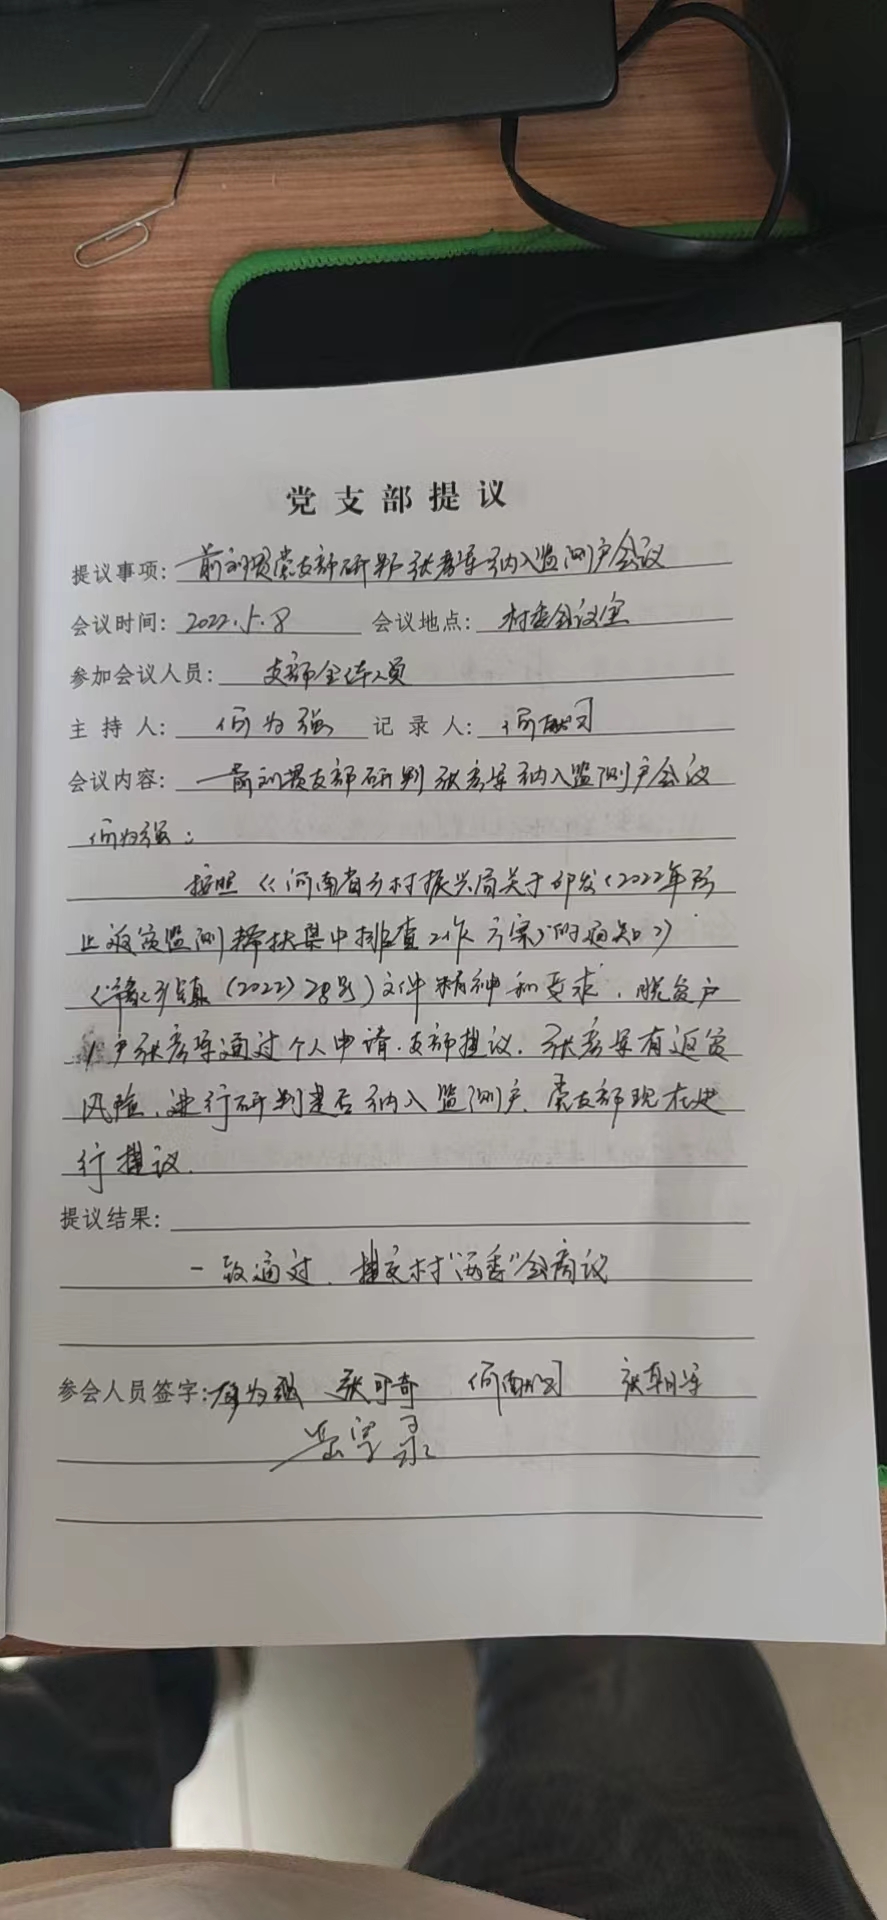 党支部提议
提议事项: 前刘贯党支部研判张孝军纳入监测户会议
会议时间: 2022.5.8 会议地点: 村委会议室
参加会议人员: 支部全体人员
主持人: 何为强 记录人: 何
会议内容: 前刘贯支部研判张孝军纳入监测户会议
何为强:
按照《河南省乡村振兴局关于印发〈2022年防
止返贫监测帮扶集中排查工作方案〉的通知》
(豫乡镇(2022)28号)文件精神和要求,脱贫户
1户张孝军通过个人申请.支部提议.张孝军有返贫
风险,进行研判是否纳入监测户.党支部现在进
行提议.
提议结果:
一致通过.提交村"两委"会商议
参会人员签字: 何为强 张可奇 何 张朝军